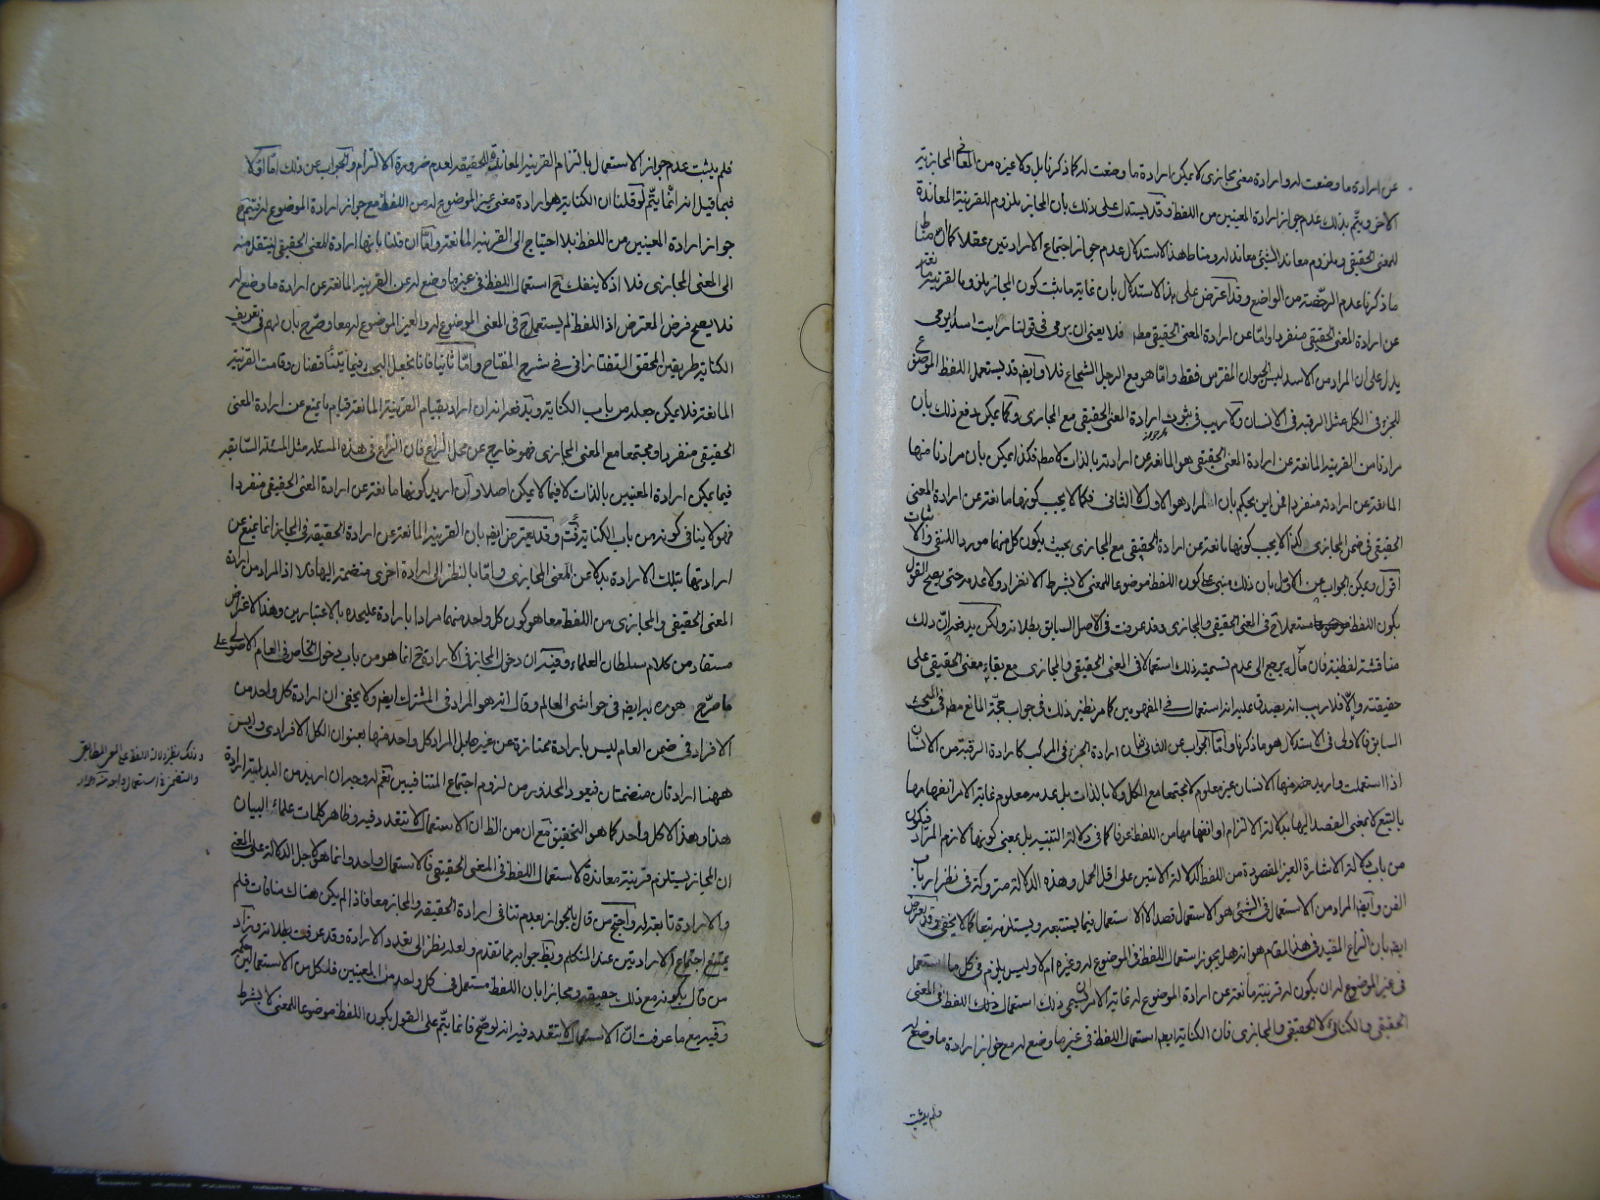 عن ارادة ما وضعت له وارادة معنى مجازى لا يمكن ارادة ما وضعت له كما ذكرنا بل ولا غيره من المعانى المجازية
الاخر ويتم بذلك عدم جواز ارادة المعنيين من اللفظ وقد يستدل على ذلك بان المجاز ملزوم للقرينة المعاندة
للمعنى الحقيقى وملزوم معاند الشئ معاند له ومناط هذا الاستدلال عدم جواز اجتماع الارادتين عقلا كما ان مناط
ما ذكرنا عدم الرخصة من الواضع وقد اعترض على هذا الاستدلال بان غاية ما يثبت كون المجاز ملزوما لقرينة مانعة
عن ارادة المعنى الحقيقى منفردا واما عن ارادة المعنى الحقيقى مطـ فلا يعنى ان يرمى فى قولنا رايت اسدا يرمى
يدل على ان المراد من الاسد ليس الحيوان المفترس فقط واما هو مع الرجل الشجاع فلا وايضا قد يستعمل اللفظ الموضوع
للجزء فى الكل مثل الرقبة فى الانسان ولا ريب فى ثبوت ارادة المعنى الحقيقى مع المجازى وكما يمكن دفع ذلك بان
مرادنا من القرينة المانعة عن ارادة المعنى الحقيقى هو المانعة عن ارادته بالذات لا مطـ فكذا يمكن بان مرادنا منها
المانعة عن ارادته منفردا فمن اين يحكم بان المراد هو الاول لا الثانى فكما لا يجب كونها مانعة عن ارادة المعنى
الحقيقى فى ضمن المجازى كذا لا يجب كونها مانعة عن ارادة الحقيقى مع المجازى بحيث يكون كل منهما موردا للنفى والاثبات
اقول ويمكن الجواب عن الاول بان ذلك مبنى على كون اللفظ موضوعا للمعنى لا بشرط الانفراد ولا عدمه حتى يصح القول
بكون اللفظ مستعملا ح فى المعنى الحقيقى والمجازى وقد عرفت فى الاصل السابق بطلانه ولكن يدفعه ان ذلك
مناقشة لفظية فان مآله يرجع الى عدم تسمية ذلك استعمالا فى المعنى الحقيقى والمجازى مع بقاء معنى الحقيقى على
حقيقته والا فلا ريب انه يصدق عليه انه استعمال فى المفهومين كما مر نظير ذلك فى جواب حجة المانع مطـ فى المبحث
السابق فالاولى فى الاستدلال هو ما ذكرنا واما الجواب عن الثانى فبان ارادة الجزء فى المركب كارادة الرقبة من الانسان
اذا استعملت واريد منها الانسان غير معلوم لا مجتمعا مع الكل ولا بالذات بل عدمه معلوم غاية الامر انفهامها
بالتبع لا بمعنى القصد اليها بدلالة الالتزام او انفهامها من اللفظ عرفا كما فى دلالة التنبيه بل بمعنى كونها لازم المراد فيكون
من باب دلالة الاشارة الغير المقصودة من اللفظ كدلالة الايتين على اقل الحمل وهذه الدلالة متروكة فى نظر ارباب
الفن وايضا المراد من الاستعمال فى الشئ هو الاستعمال قصدا لا الاستعمال فيما يستتبعه ويستلزمه تبعا كما لا يخفى وقد يعترض
ايضا بان النزاع المقيد فى هذا المقام هو انه هل يجوز استعمال اللفظ فى الموضوع له وغيره ام لا وليس يلزم فى كل ما استعمل
فى غير الموضوع له ان يكون له قرينة مانعة عن ارادة الموضوع له غاية الامر ان يسمى ذلك استعمال ذلك اللفظ فى المعنى
الحقيقى والكنائى لا الحقيقى والمجازى فان الكناية ايضا استعمال اللفظ فى غير ما وضع له مع جواز ارادة ما وضع له
فلم يثبت
فلم يثبت عدم جواز الاستعمال بالتزام القرينة المعاندة للحقيقة لعدم ضرورة الالتزام والجواب عن ذلك اما اولا
فبما قيل انه انما يتم لو قلنا ان الكناية هو ارادة معنى غير الموضوع له من اللفظ مع جواز ارادة الموضوع له فيتم ح
جواز ارادة المعنيين من اللفظ بلا احتياج الى القرينة المانعة واما ان قلنا بانها ارادة للمعنى الحقيقى لينتقل منه
الى المعنى المجازى فلا اذ لا ينفك ح استعمال اللفظ فى غير ما وضع له عن القرينة المانعة عن ارادة ما وضع له
فلا يصح فرض المعترض اذ اللفظ لم يستعمل ح فى المعنى الموضوع له والغير الموضوع له معا وصرح بان لهم فى تعريف
الكناية طريقين المحقق التفتازانى فى شرح المفتاح واما ثانيا فانا نجعل البحث فيما يتناقضان وقامت القرينة
المانعة فلا يمكن جعله من باب الكناية ويدفعه انه ان اراد بقيام القرينة المانعة قيام ما يمنع عن ارادة المعنى
الحقيقى منفردا ومجتمعا مع المعنى المجازى فهو خارج عن محل النزاع فان النزاع فى هذه المسئلة مثل المسئلة السابقة
فيما يمكن ارادة المعنيين بالذات لا فيما لا يمكن اصلا وان اريد كونها مانعة عن ارادة المعنى الحقيقى منفردا
فهو لا ينافى كونه من باب الكناية وقد يعترض ايضا بان القرينة المانعة عن ارادة الحقيقة فى المجاز انما يمنع عن
ارادتها بتلك الارادة بدلا عن المعنى المجازى واما بالنظر الى ارادة اخرى منضمة اليها فلا اذ المراد من ارادة
المعنى الحقيقى والمجازى من اللفظ معا هو كون كل واحد منهما مرادا بارادة عليحده بالاعتبارين وهذا الاعتراض
مستفاد من كلام سلطان العلماء وفيه ان دخول المجاز فى الارادة ح انما هو من باب دخول الخاص فى العام الاصولى على
ما صرح هو ره به ايضا فى حواشى المعالم وقال انه هو المراد فى المشترك ايضا ولا يخفى ان ارادة كل واحد من
الافراد فى ضمن العام ليس بارادة ممتازة عن غيره بل المراد كل واحد منها بعنوان الكل الافرادى وليس
ههنا ارادتان منضمتان فيعود المحذور من لزوم اجتماع المتنافيين نعم له وجه ان اريد من البدلية ارادة
هذا وهذا لا كل واحد كما هو التحقيق مع ان من الظ ان الاستعمال لا يتعدد فيه وظاهر كلمات علماء البيان
ان المجاز يستلزم قرينة معاندة لاستعمال اللفظ فى المعنى الحقيقى فالاستعمال واحد وانما هو لاجل الدلالة على المعنى
والارادة تابعة له واحتج من قال بالجواز بعدم تنافى ارادة الحقيقة والمجاز معا فاذا لم يكن هناك منافات فلم
يمتنع اجتماع الارادتين عند المتكلم ويظ جوابه مما تقدم ولعله نظر الى تعدد الارادة وقد عرفت بطلانه وزاد
من قال بكونه مع ذلك حقيقة ومجازا بان اللفظ مستعمل فى كل واحد من المعنيين فلكل من الاستعمالين حكم
وفيه مع ما عرفت ان الاستعمال لا يتعدد فيه انه لو صح فانما يتم على القول بكون اللفظ موضوعا للمعنى لا بشرط
وذلك نظير دلالة اللفظ على المعنى المطابقى
والتضمنى فى استعمال واحد